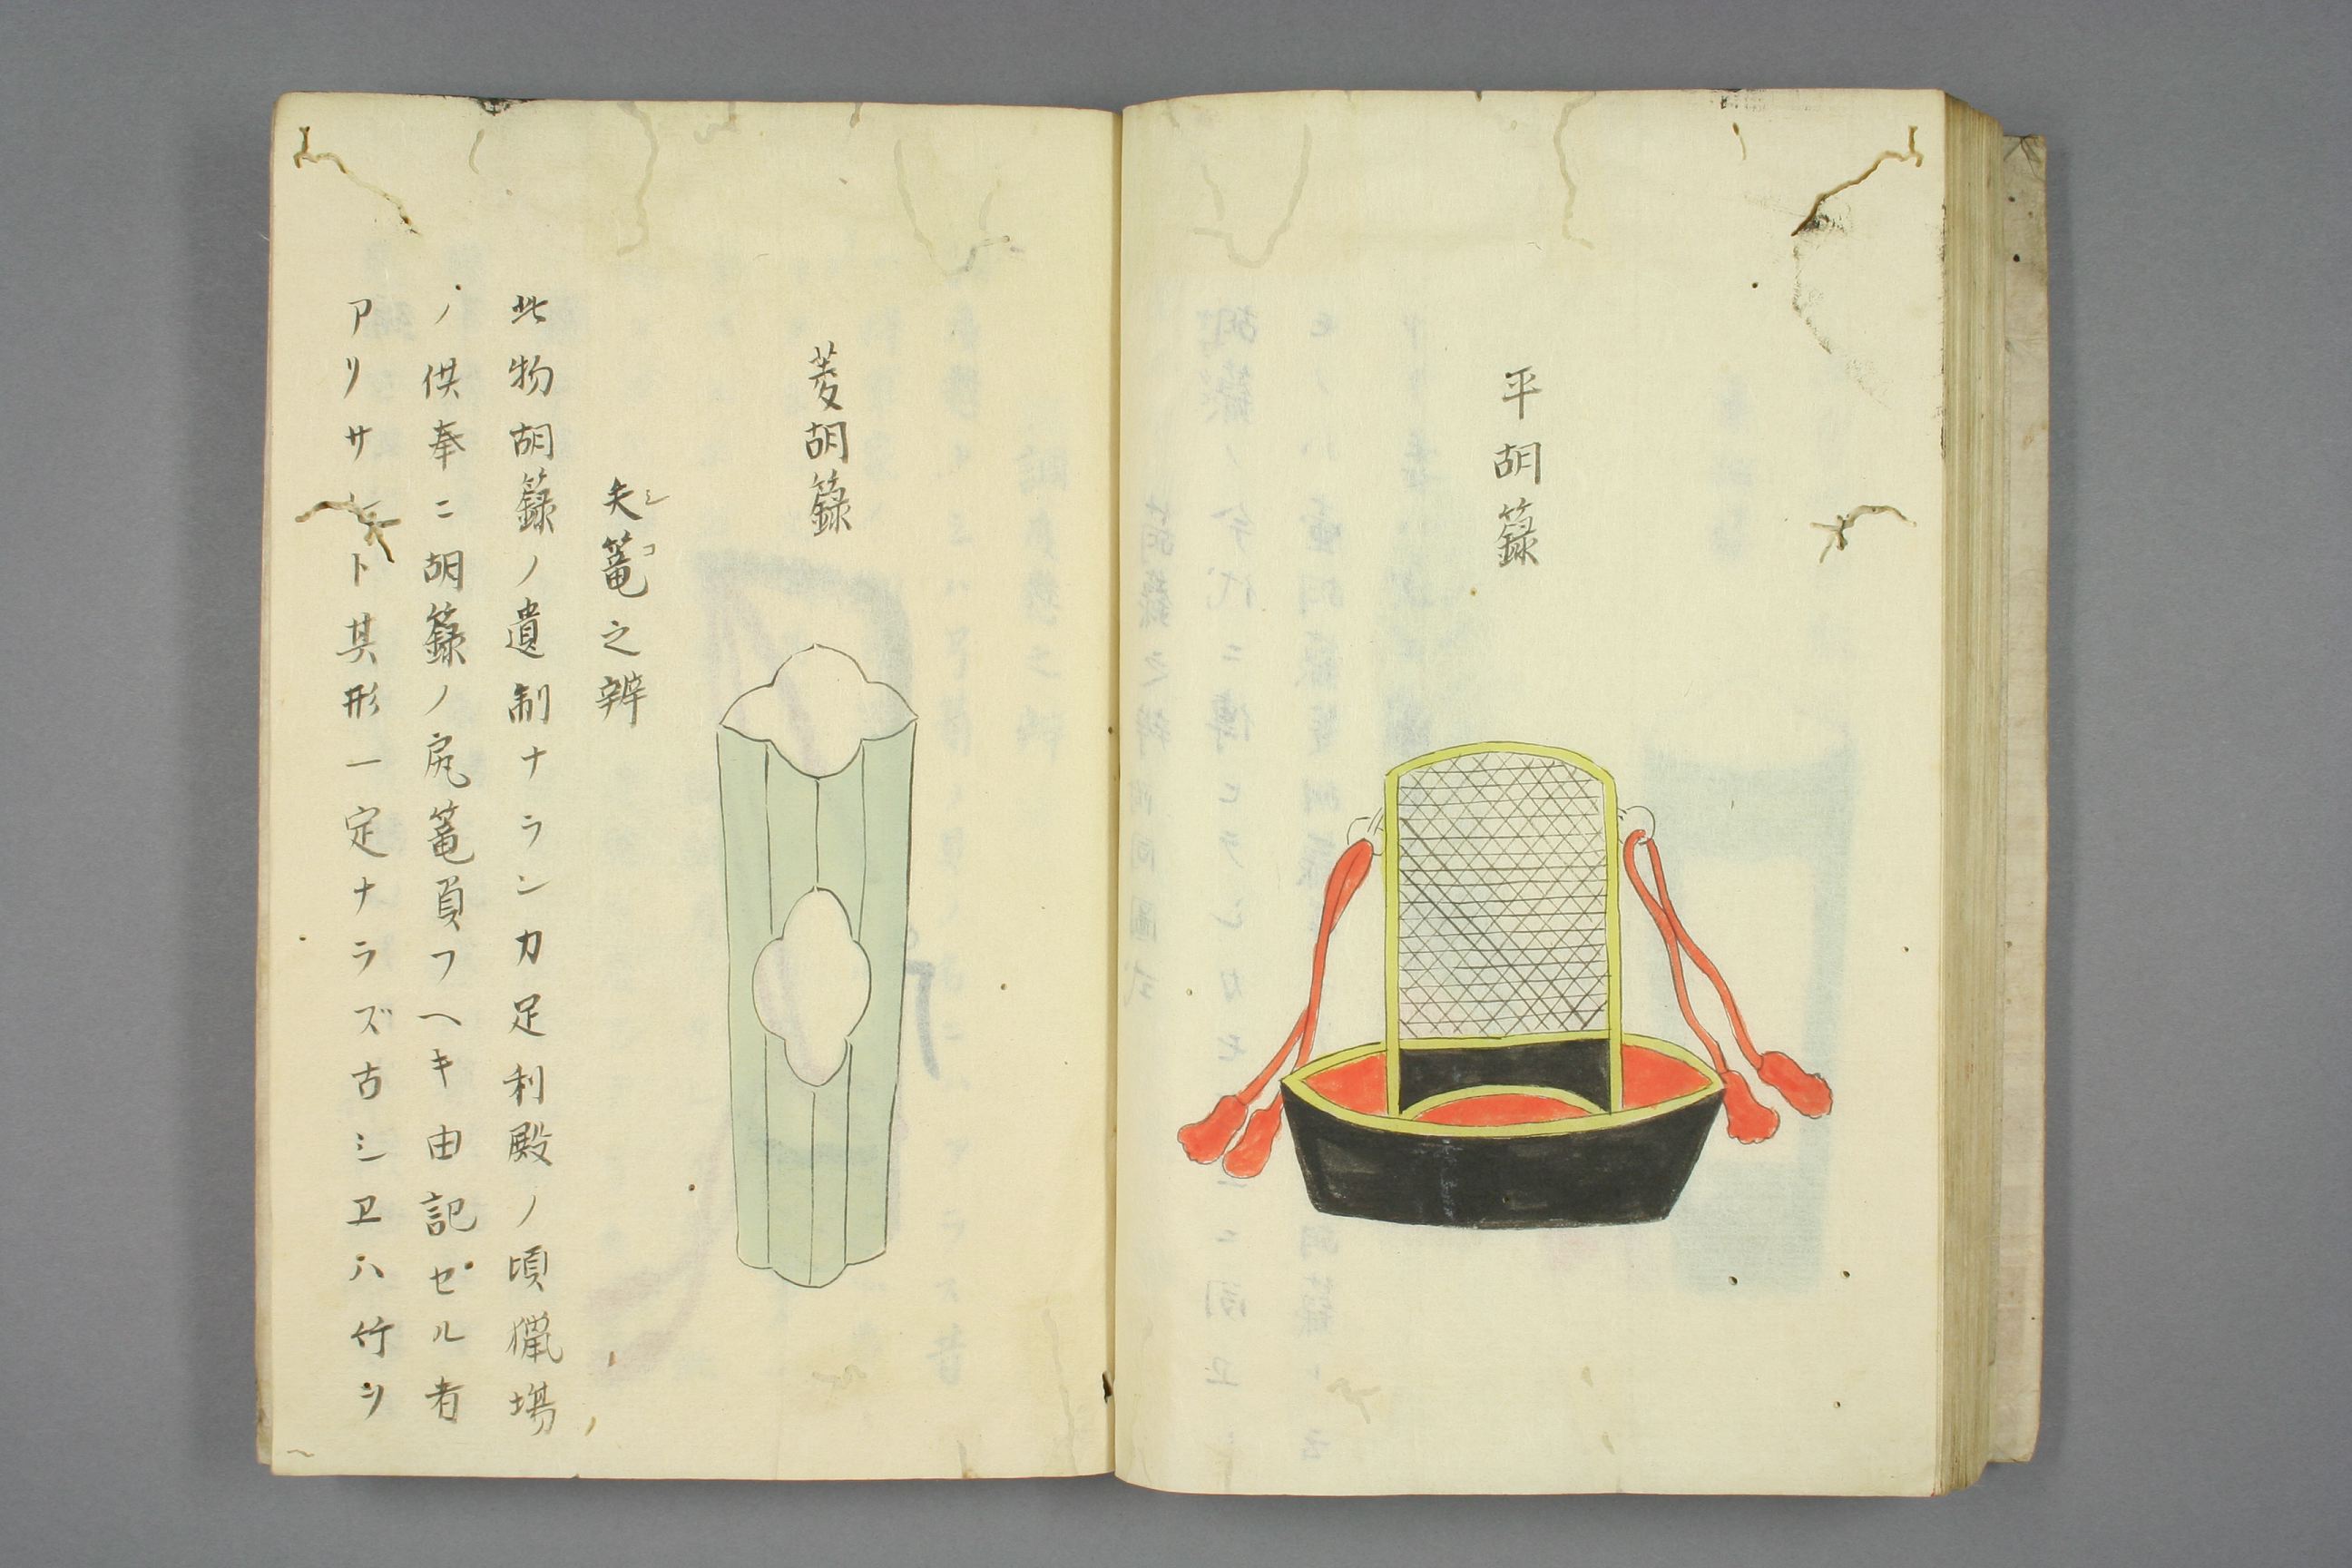 平胡籙
菱胡籙
矢篭之辨
シコ
此物胡籙ノ遺制ナランカ足利殿ノ頃猟塲
ノ供奉ニ胡籙ノ尻篭負フヘキ由記セル者
アリサト其形一定ナラズ古シヱハ竹